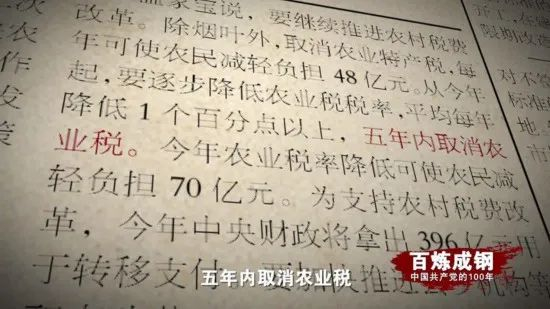 温家宝说，要继续推进农村税费
改革。除烟叶外，取消农业特产税，每
年可使农民减轻负担 48 亿元。从今年
起，要逐步降低农业税税率，平均每年
降低 1 个百分点以上，五年内取消农
业税。今年农业税率降低可使农民减
轻负担 70 亿元。为支持农村税费改
革，今年中央财政将拿出 396 亿元用
于转移支付 要加快推进 机构等
次
农
作
发
策
限期改
对不
标准
地
市
五年内取消农业税
百炼成钢
中国共产党的100年